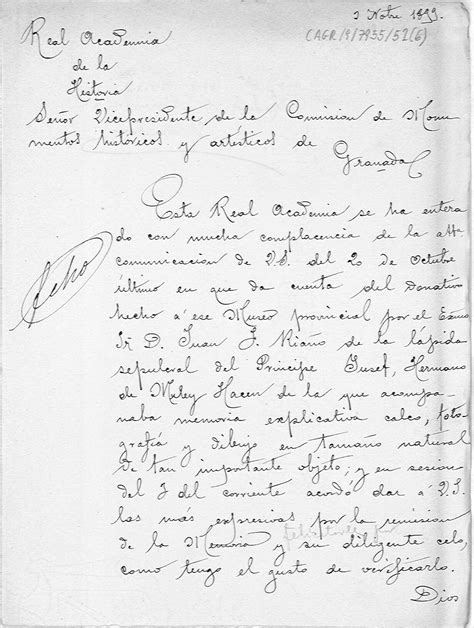 3 Nobre 1899.
(CAGR/9/7955/52(6)
Real Academia
de la
Historia
Señor Vicepresidente de la Comision de Monu
mentos históricos y artísticos de
Granada
Esta Real Academia se ha entera
do con mucha complacencia de la att.
comunicacion de V.S. del 20 de Octubre
último en que da cuenta del donativo
hecho á ese Museo provincial por el Excmo
Sr D. Juan F. Riaño de la lápida
sepulcral del Principe Yusef, Hermano
de Muley Hacen de la que acompa
naba memoria explicativa calco, foto
grafia y dibujo en tamaño natural
de tan importante objeto; y en sesion
del 3 del corriente acordó dar á V.S.
las más expresivas por la remision
de la Memoria y su diligente celo,
como tengo el gusto de verificarlo.
Dios